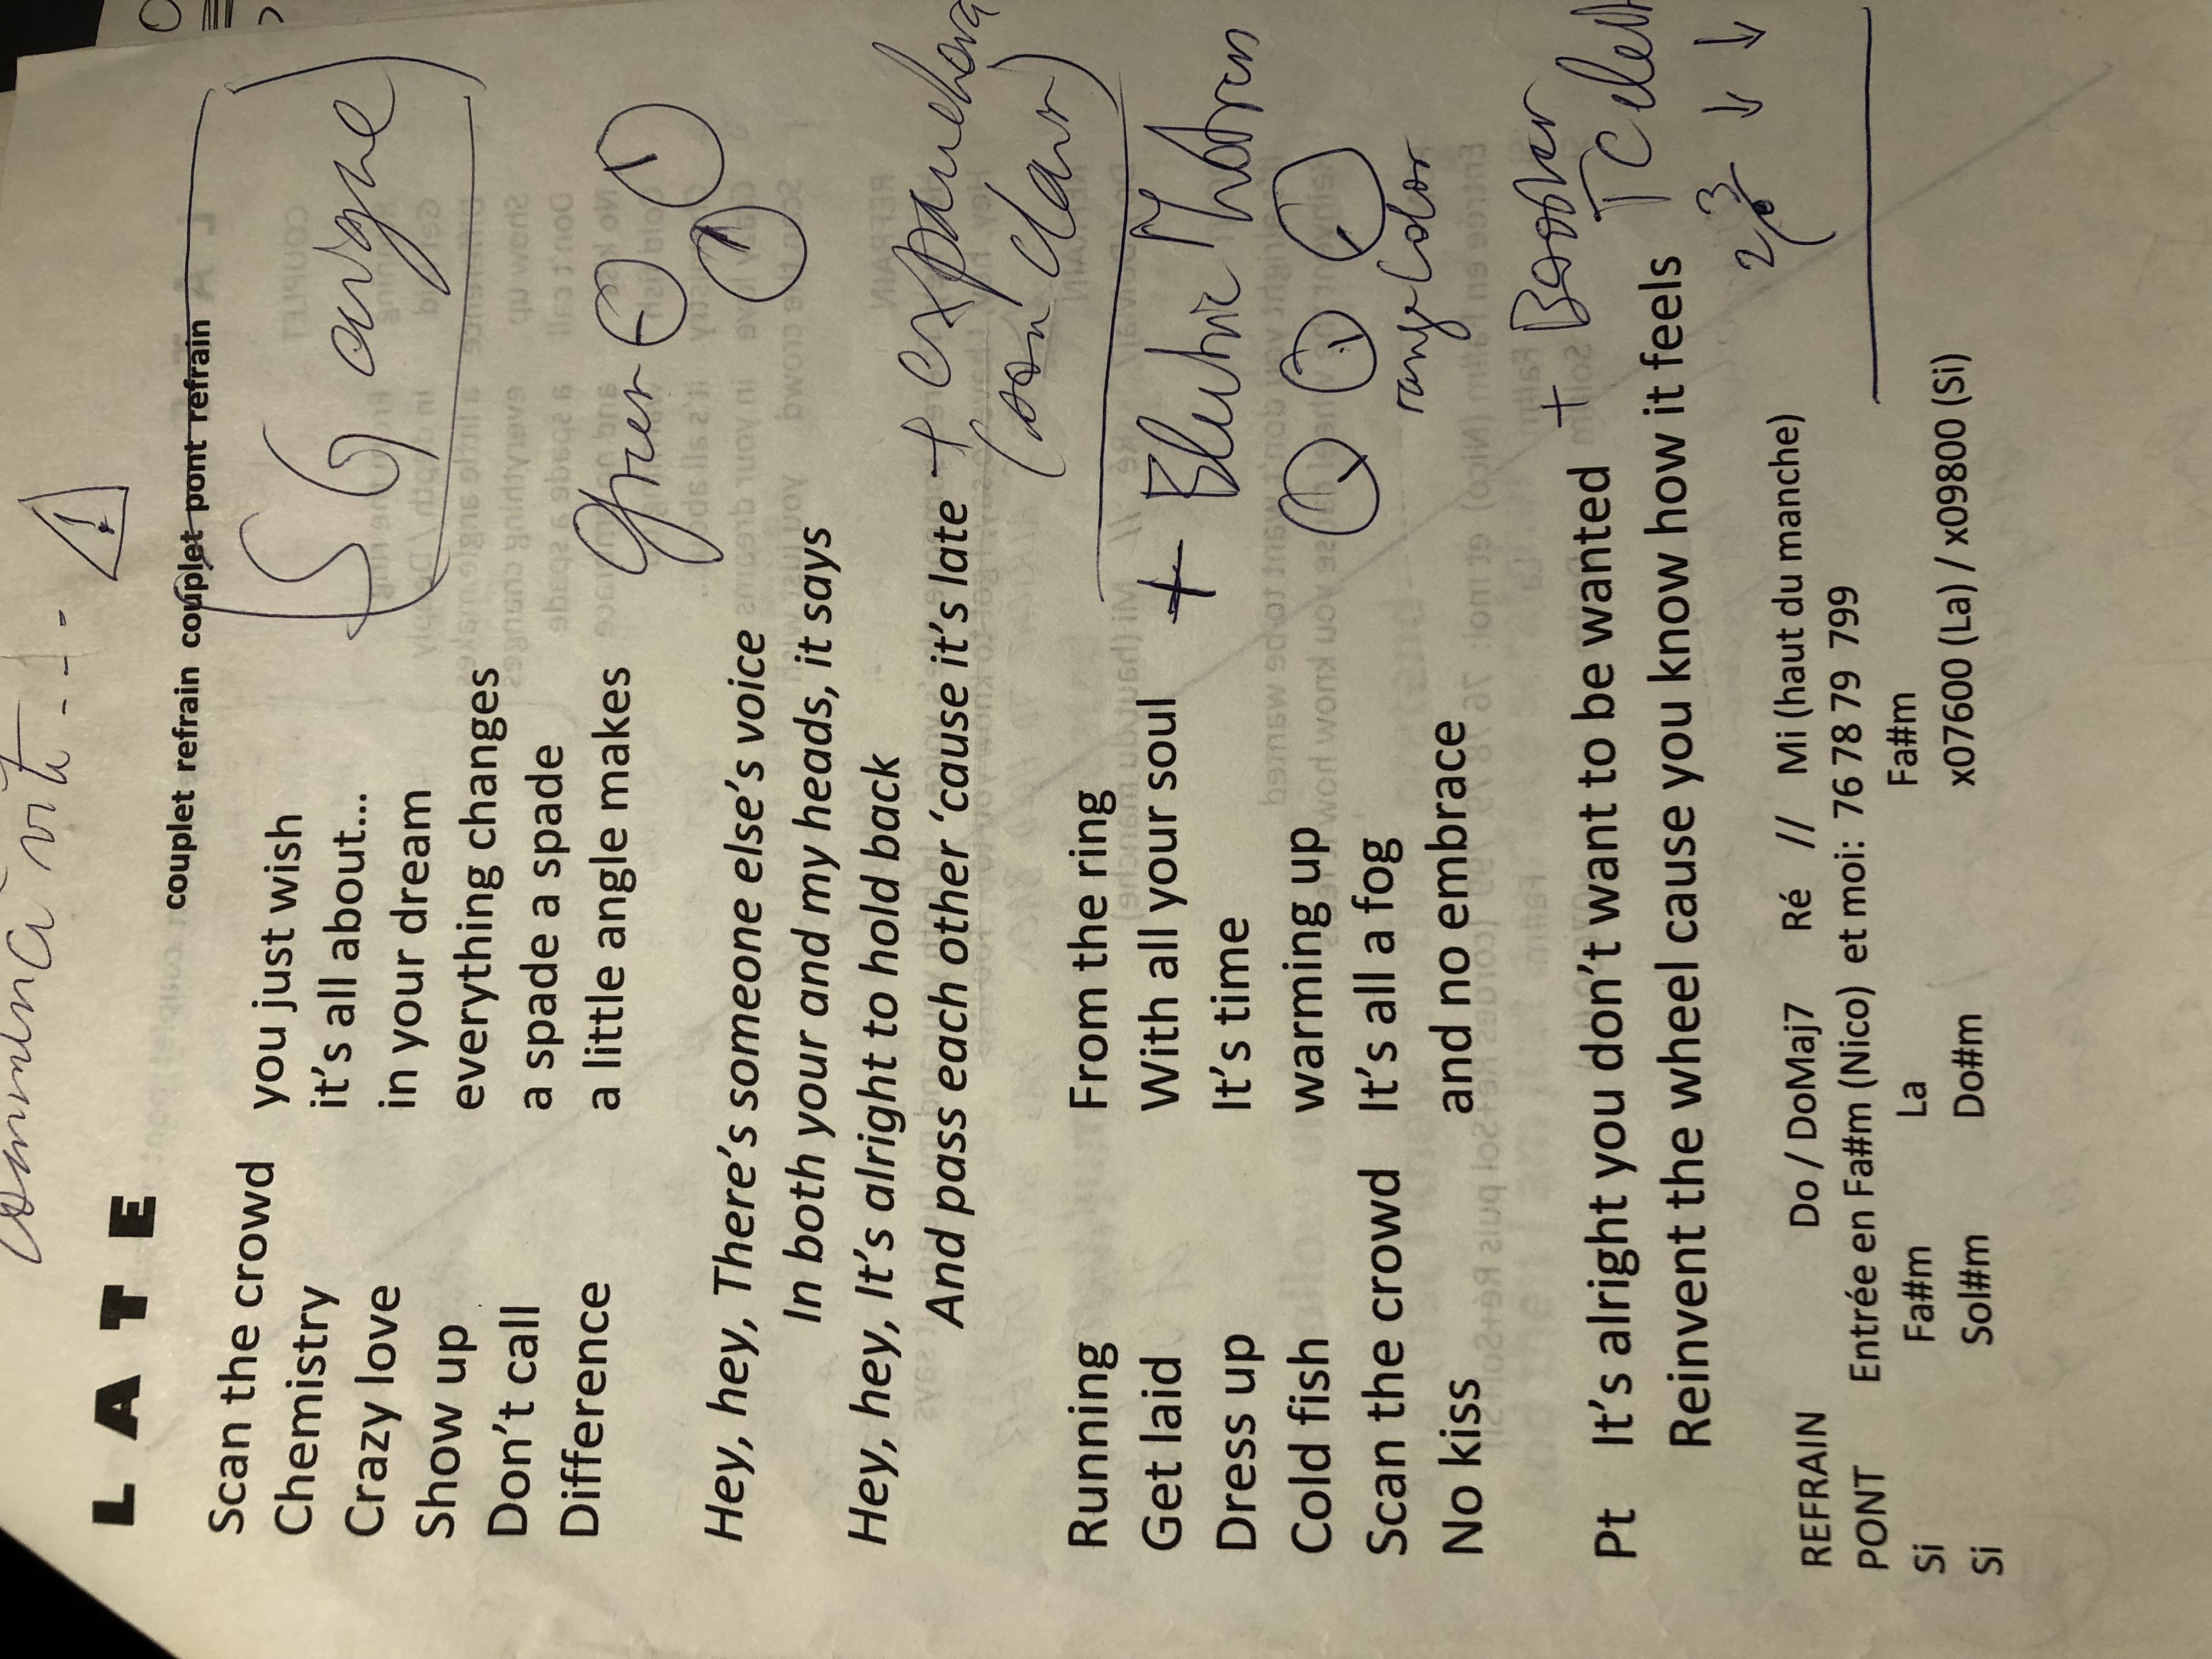 L A T E
couplet refrain couplet pont refrain
Scan the crowd you just wish
Chemistry it's all about...
Crazy love in your dream
Show up everything changes
Don't call a spade a spade
Difference a little angle makes
Hey, hey, There's someone else's voice
In both your and my heads, it says
Hey, hey, It's alright to hold back
And pass each other 'cause it's late
Running From the ring
Get laid With all your soul
Dress up It's time
Cold fish warming up
Scan the crowd It's all a fog
No kiss and no embrace
Pt It's alright you don't want to be wanted
Reinvent the wheel cause you know how it feels
REFRAIN Do / DoMaj7 Ré // Mi (haut du manche)
PONT Entrée en Fa#m (Nico) et moi: 76 78 79 799
Si Fa#m La Fa#m
Si Sol#m Do#m x07600 (La) / x09800 (Si)
(son clair)
+ Electric
+ Booster